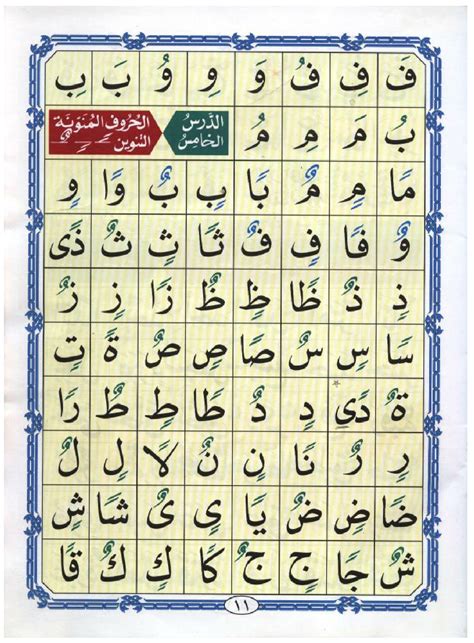 فَ فِ فُ وَ وِ وُ بَ بِ
بُ مَ مِ مُ
الدَّرْسُ الخَامِسُ
الحُرُوفُ المُنَوَّنَةُ
التَّنْوِين
مًا مٍ مٌ بًا بٍ بٌ وًا وٍ
وٌ فًا فٍ فٌ ثًا ثٍ ثٌ ذًى
ذٍ ذٌ ظًا ظٍ ظٌ زًا زٍ زٌ
سًا سٍ سٌ صًا صٍ صٌ ةً تٍ
ةٌ دًى دٍ دٌ طًا طٍ طٌ رًا
رٍ رٌ نًا نٍ نٌ لًا لٍ لٌ
ضًا ضٍ ضٌ يًا یٍ یٌ شًا شٍ
شٌ جًا جٍ جٌ كًا كٍ كٌ قًا
١١